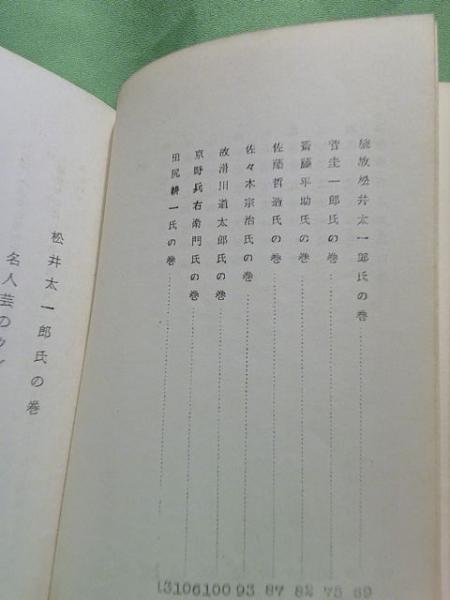 松井太一郎氏の巻……69
菅圭一郎氏の巻……75
齋藤平助氏の巻……82
佐藤哲造氏の巻……87
佐々木宗治氏の巻……93
故滑川道太郎氏の巻……100
京野兵右衛門氏の巻……106
田尻耕一氏の巻……13
松井太一郎氏の巻
名人芸の